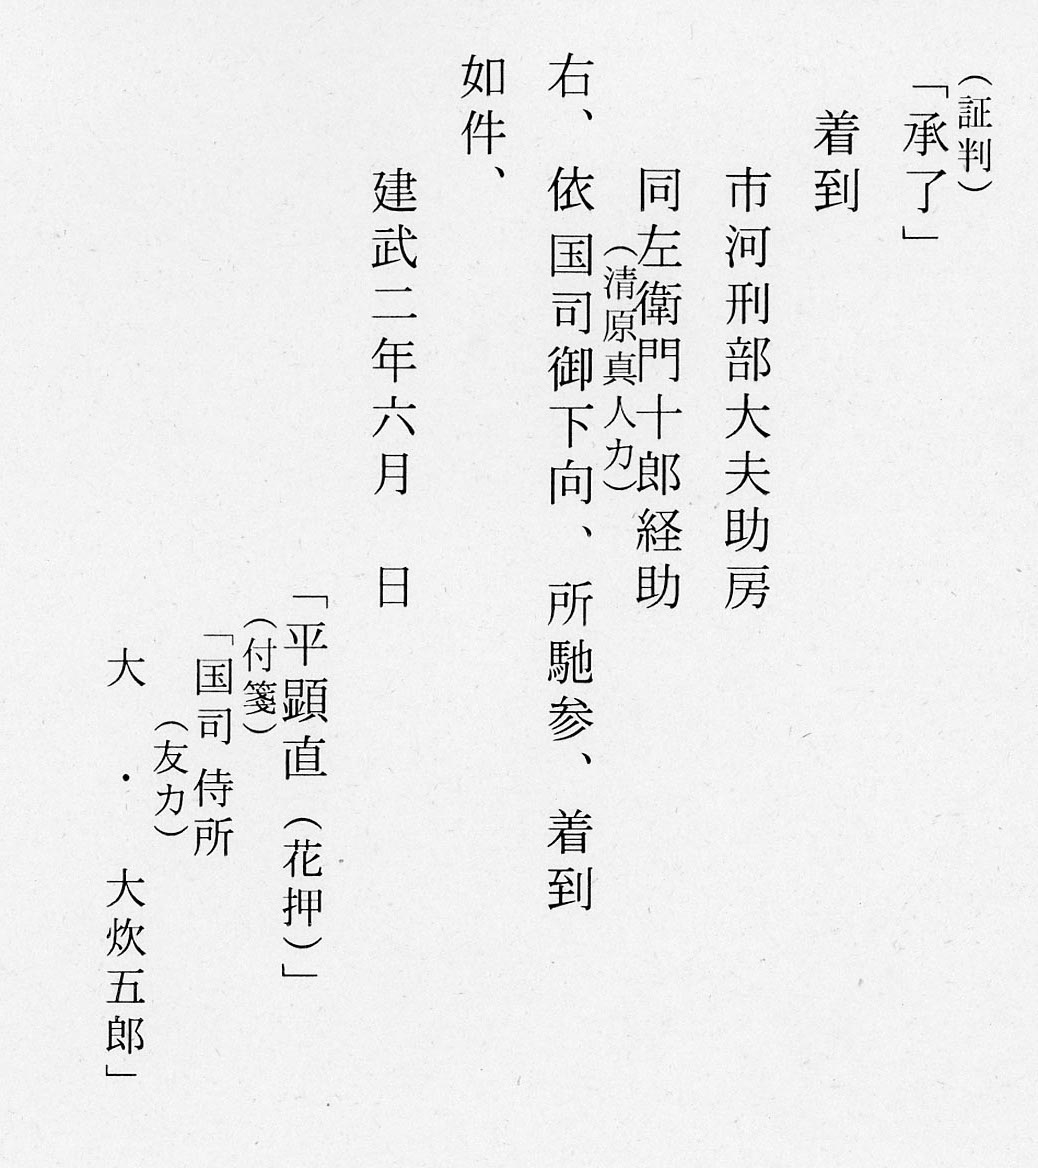 （証判）
「承了」
着到
市河刑部大夫助房
同左衛門十郎経助
（清原真人カ）
右、依国司御下向、所馳参、着到
如件、
建武二年六月　日
「平顕直（花押）」
（付箋）
「国司侍所
（友カ）
大・　大炊五郎」